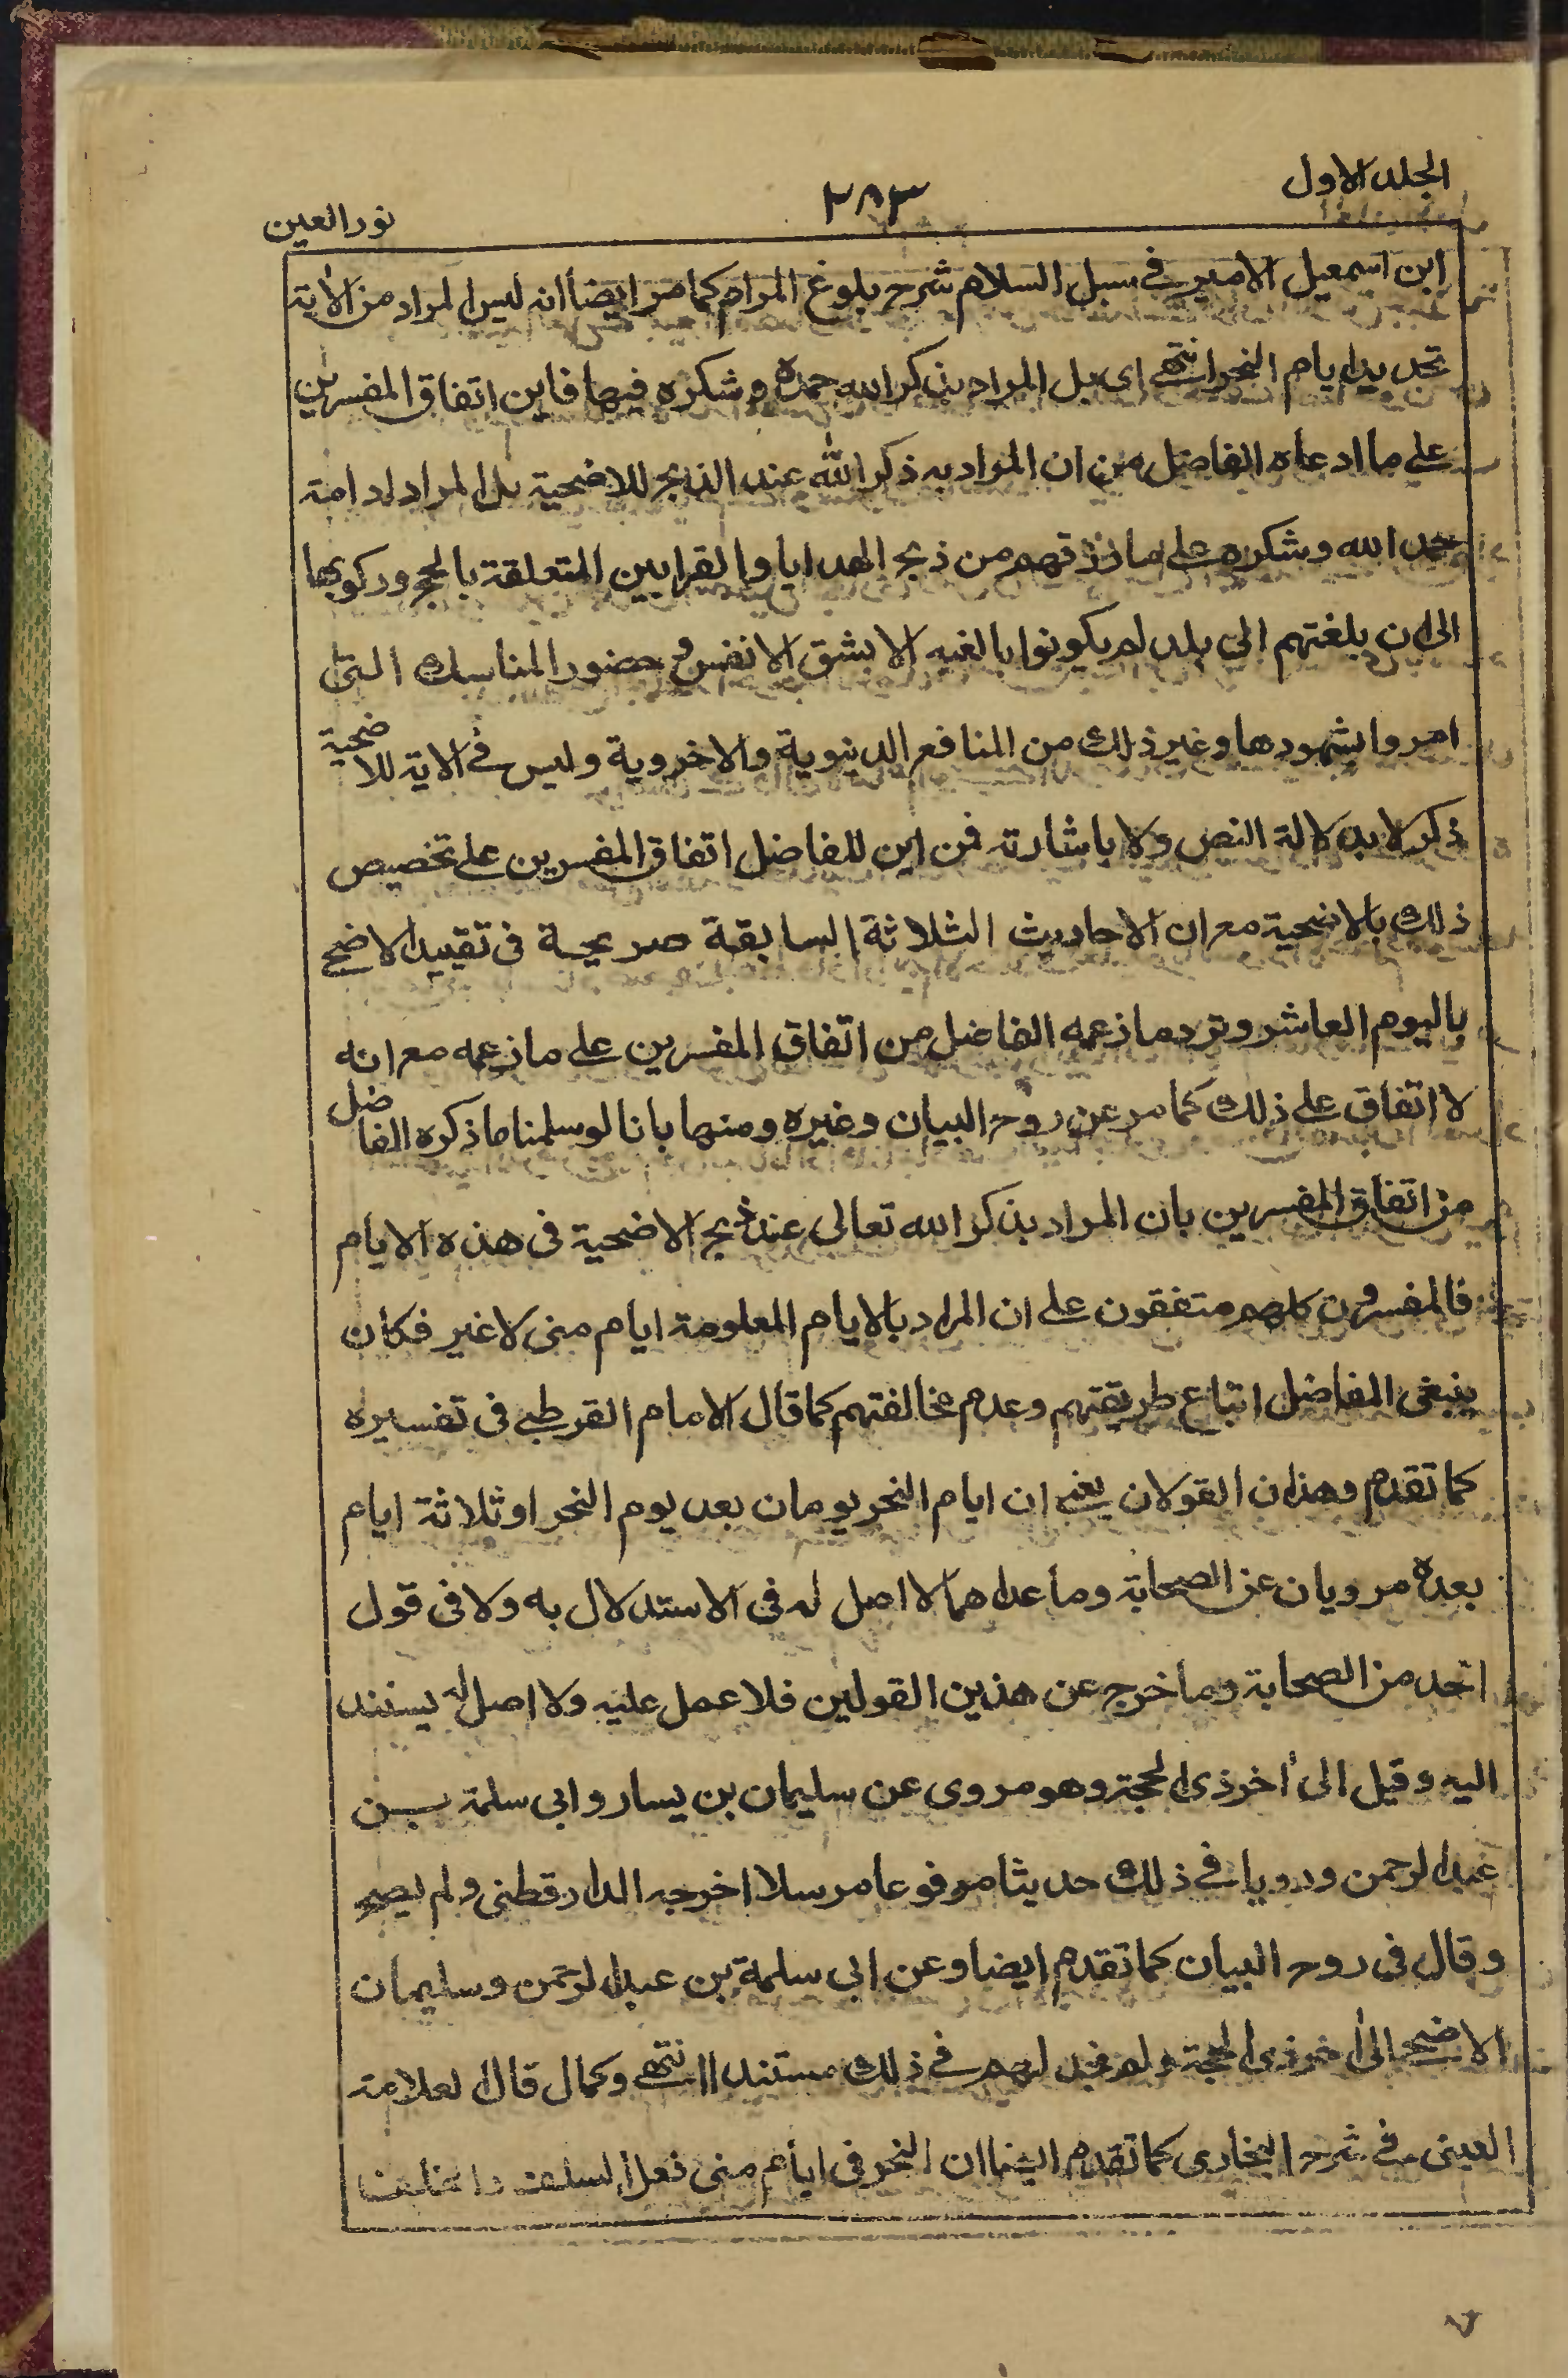 الجلد الاول
٢٨٣
نور العين
ابن اسمعيل الامير في سبل السلام شرح بلوغ المرام كما مر ايضا انه ليس المراد من الاية
تحديد ايام النحر انتهى اى بل المراد بذكر الله حمده وشكره فيها فاين اتفاق المفسرين
على ما ادعاه الفاضل من ان المراد به ذكر الله عند الذبح للاضحية بل المراد ادامة
حمد الله وشكره على ما رزقهم من ذبح الهدايا والقرابين المتعلقة بالحج وركوبها
الى ان بلغتهم الى بلد لم يكونوا بالغيه الا بشق الانفس و حضور المناسك التى
امروا بشهودها وغير ذلك من المنافع الدينوية والاخروية وليس في الاية للاضحية
ذكر لا بدلالة النص ولا باشارته فمن اين للفاضل اتفاق المفسرين على تخصيص
ذلك بالاضحية مع ان الاحاديث الثلاثة السابقة صريحة فى تقييد الاضحى
باليوم العاشر وترد ما زعمه الفاضل من اتفاق المفسرين على ما زعمه مع انه
لا اتفاق على ذلك كما مر عن روح البيان وغيره ومنها بانا لو سلمنا ما ذكره الفاضل
من اتفاق المفسرين بان المراد بذكر الله تعالى عند ذبح الاضحية فى هذه الايام
فالمفسرون كلهم متفقون على ان المراد بالايام المعلومة ايام منى لا غير فكان
ينبغى الفاضل اتباع طريقتهم وعدم مخالفتهم كما قال الامام القرطبى فى تفسيره
كما تقدم وهذان القولان يعنى ان ايام النحر يومان بعد يوم النحر او ثلاثة ايام
بعده مرويان عن الصحابة وما عداهما لا اصل له فى الاستدلال به ولا فى قول
احد من الصحابة وما خرج عن هذين القولين فلا عمل عليه ولا اصل له يستند
اليه وقيل الى اخر ذى الحجة وهو مروى عن سليمان بن يسار وابى سلمة بن
عبد الرحمن ورويا في ذلك حديثا مرفوعا مرسلا اخرجه الدارقطنى ولم يصح
وقال فى روح البيان كما تقدم ايضا وعن ابى سلمة بن عبد الرحمن وسليمان
الاضحى الى اخر ذى الحجة ولم نجد لهم في ذلك مستندا انتهى وكمال قال العلامة
العينى في شرح البخارى كما تقدم ايضا ان النحر فى ايام منى فعل السلف والخلف